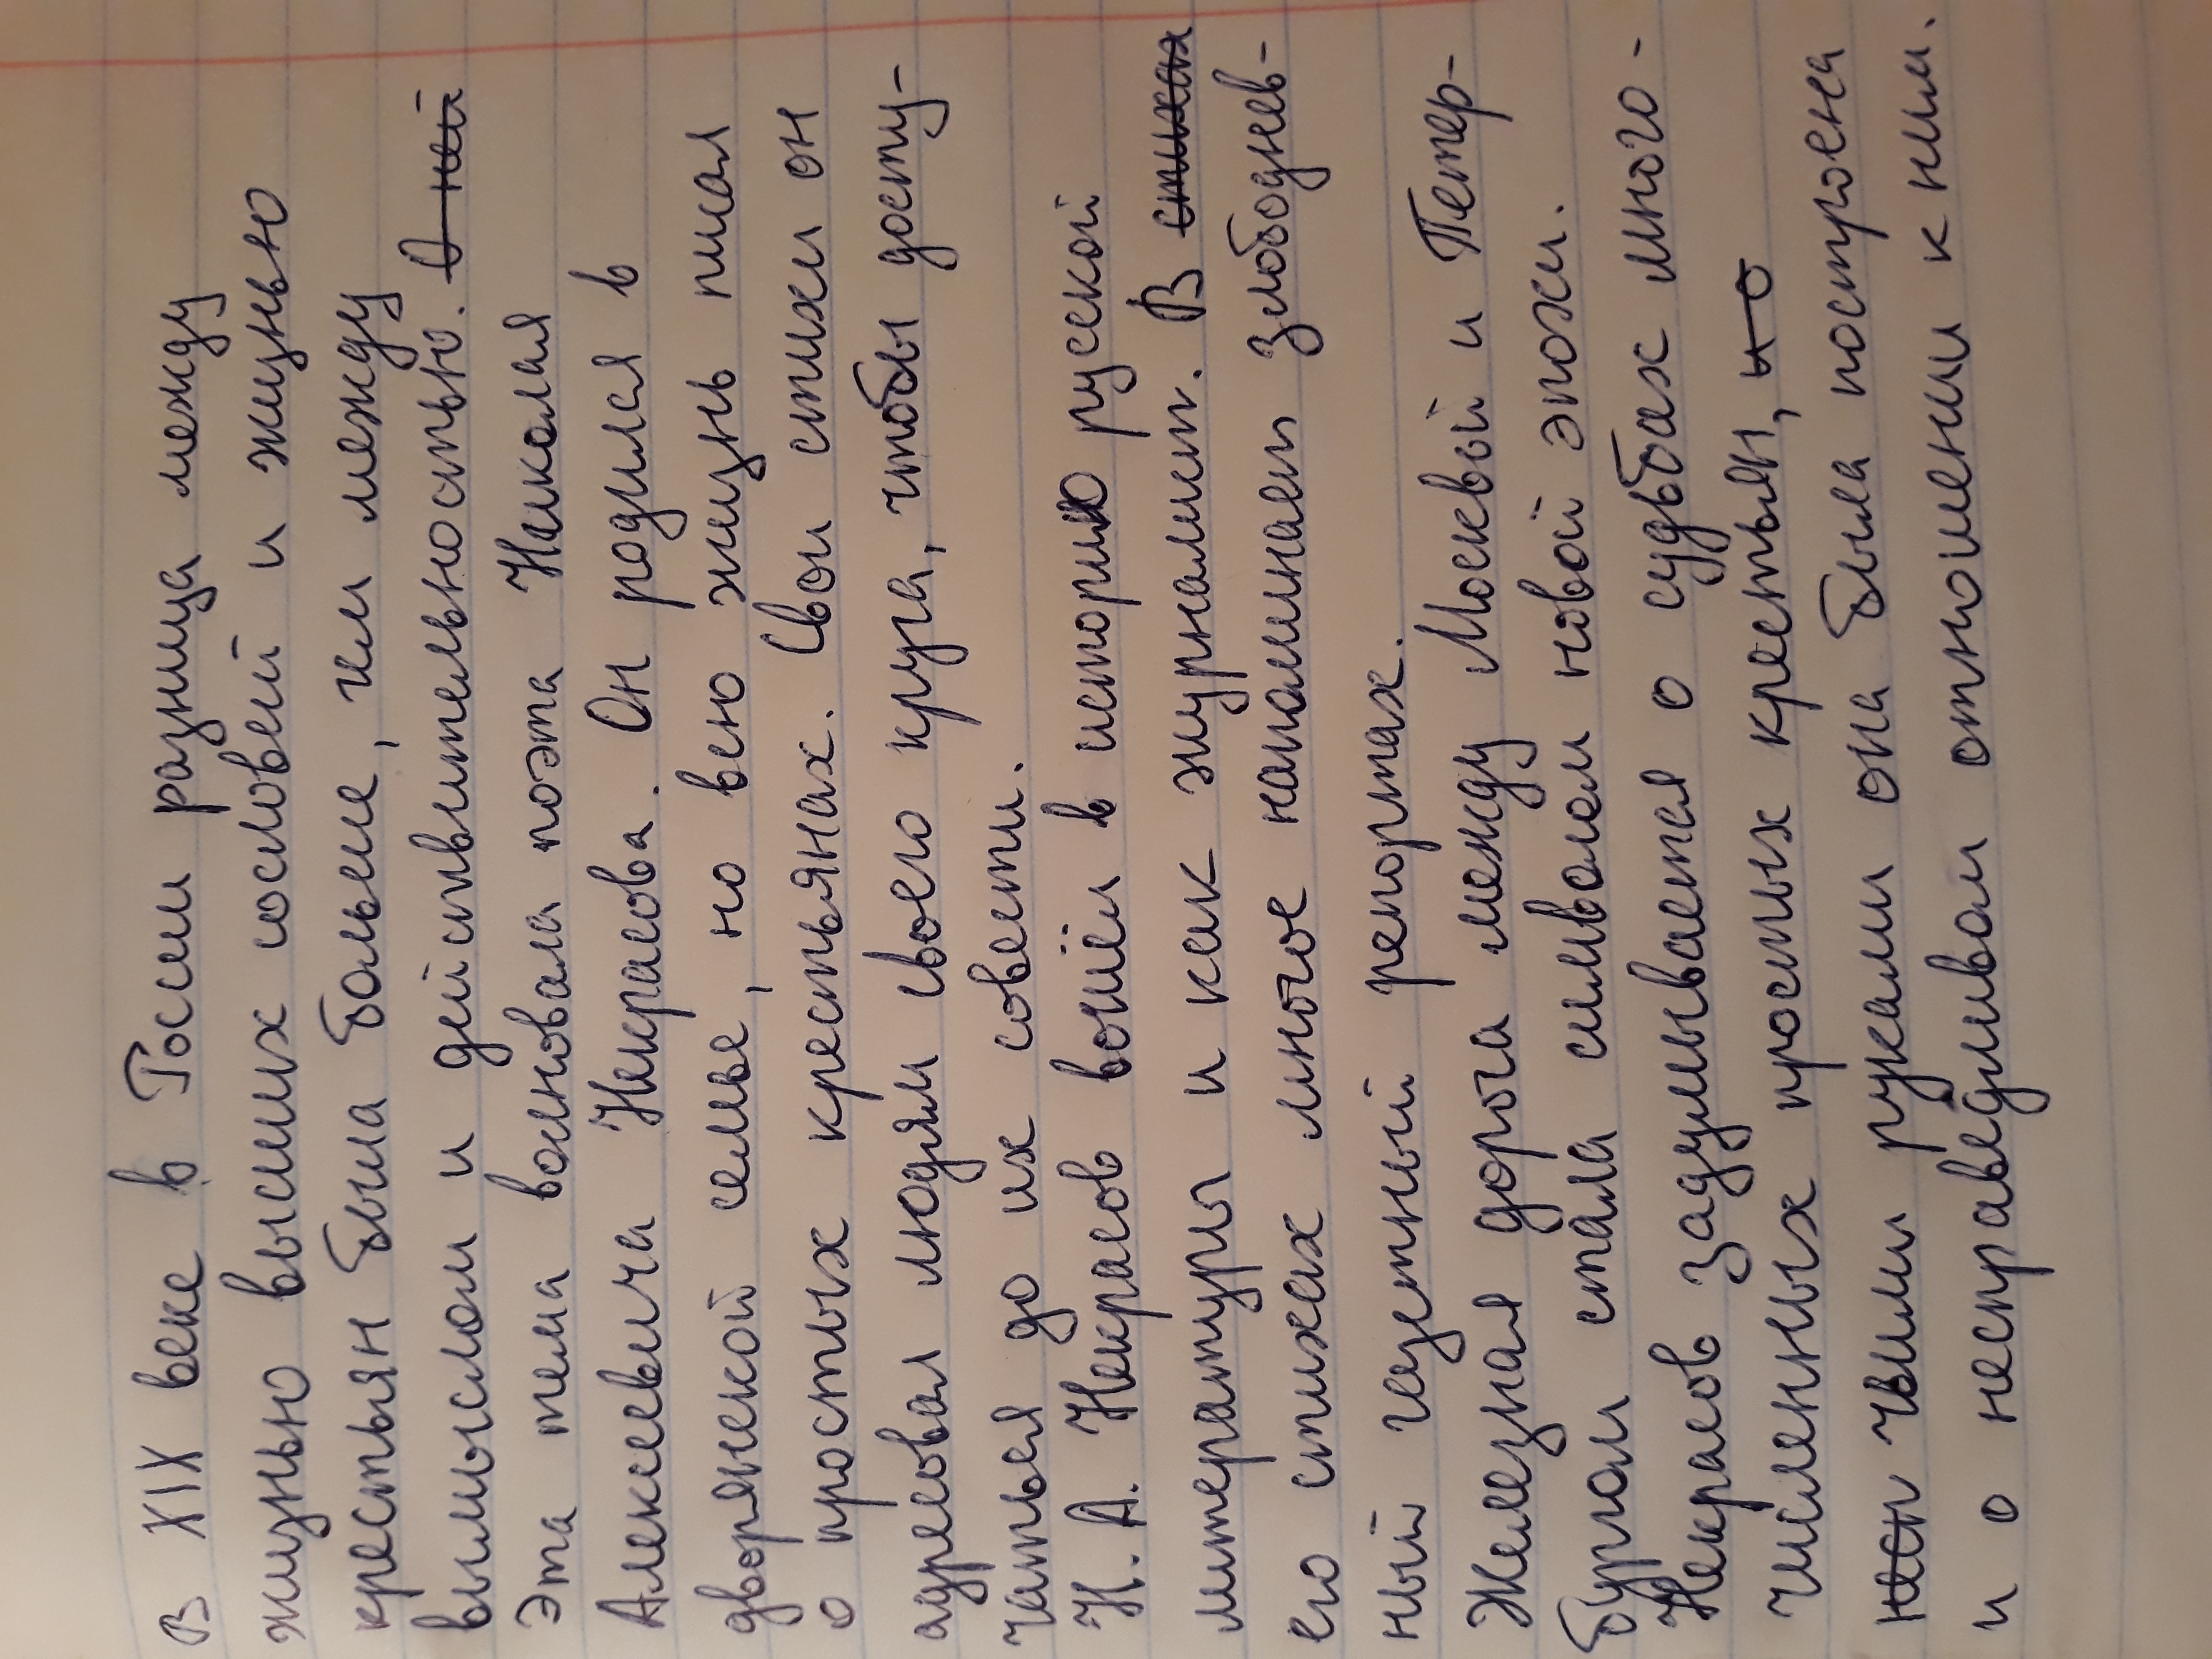 В XIX веке в Росии разница между
жизнью высших сословей и жизнью
крестьян была больше, чем между
вымыслом и действительностью. О ней
Эта тема волновала поэта Николая
Алексеевича Некрасова. Он родился в
дворянской семье, но всю жизнь писал
о простых крестьянах. Свои стихи он
адресовал людям своего круга, чтобы досту-
чаться до их совести.
Н. А. Некрасов вошёл в историю русской
литературы и как журналист. В стихах
его стихах многое напоминает злободнев-
ный газетный репортаж.
Железная дорога между Москвой и Петер-
бургом стала символом новой эпохи.
Некрасов задумывается о судьбах много-
численных простых крестьян, и о
чьими руками она была построена
и о несправедливом отношении к ним.